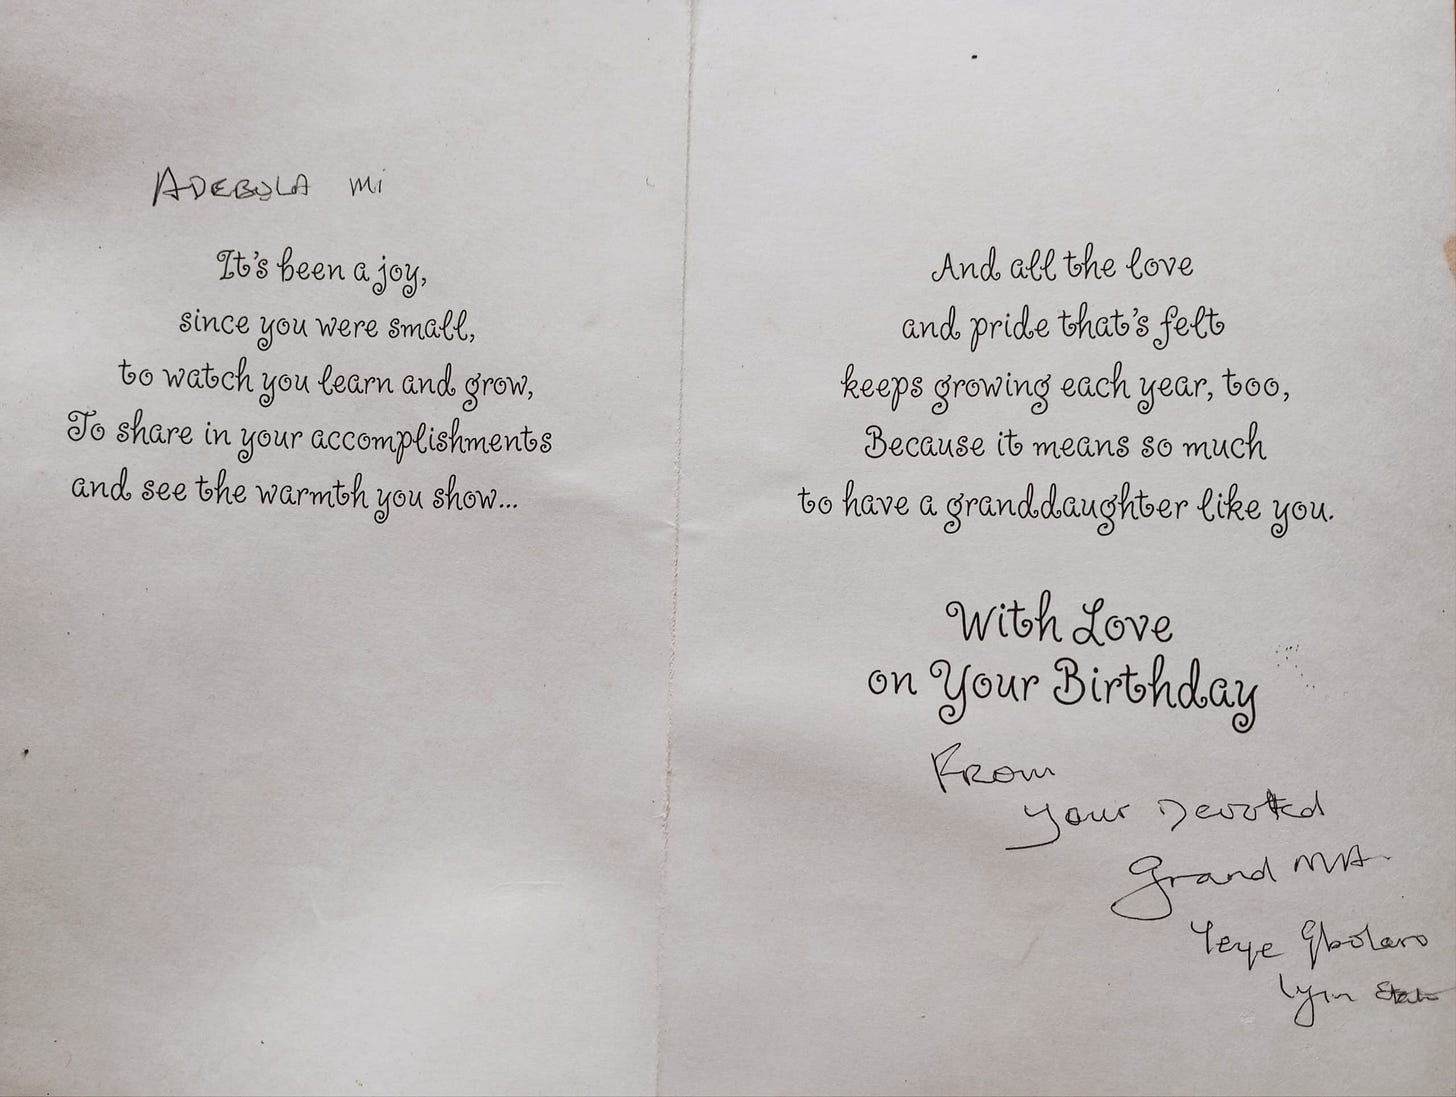 ADEBOLA mi
It's been a joy,
since you were small,
to watch you learn and grow,
To share in your accomplishments
and see the warmth you show...
And all the love
and pride that's felt
keeps growing each year, too,
Because it means so much
to have a granddaughter like you.
With Love
on Your Birthday
From
your Devoted
Grand MA
Yeye Gbolaro
Iyin